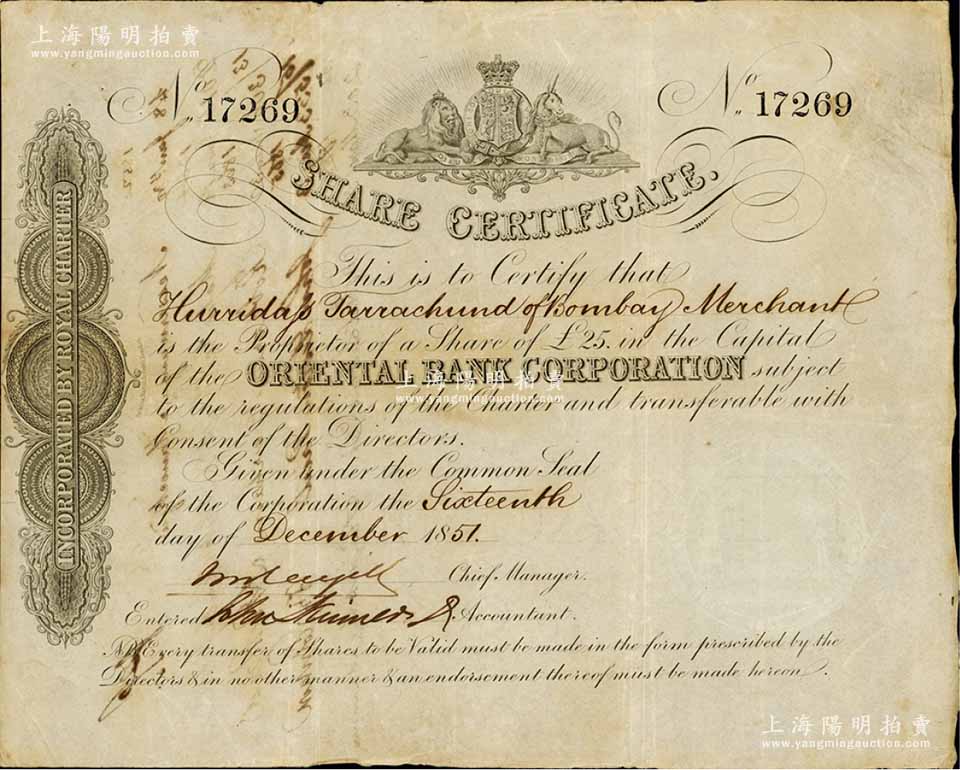 上海陽明拍賣
www.yangmingauction.com
No. 17269
No. 17269
SHARE CERTIFICATE.
This is to Certify that
Hurridass Tarrachund of Bombay Merchant
is the Proprietor of a Share of £25. in the Capital
of the ORIENTAL BANK CORPORATION subject
to the regulations of the Charter and transferable with
Consent of the Directors.
Given under the Common Seal
of the Corporation the Sixteenth
day of December 1851.
Chief Manager.
Entered Accountant.
NB. Every transfer of Shares to be Valid must be made in the form prescribed by the
Directors & in no other manner & an endorsement thereof must be made hereon.
INCORPORATED BY ROYAL CHARTER
上海陽明拍賣
www.yangmingauction.com
上海陽明拍賣
www.yangmingauction.com